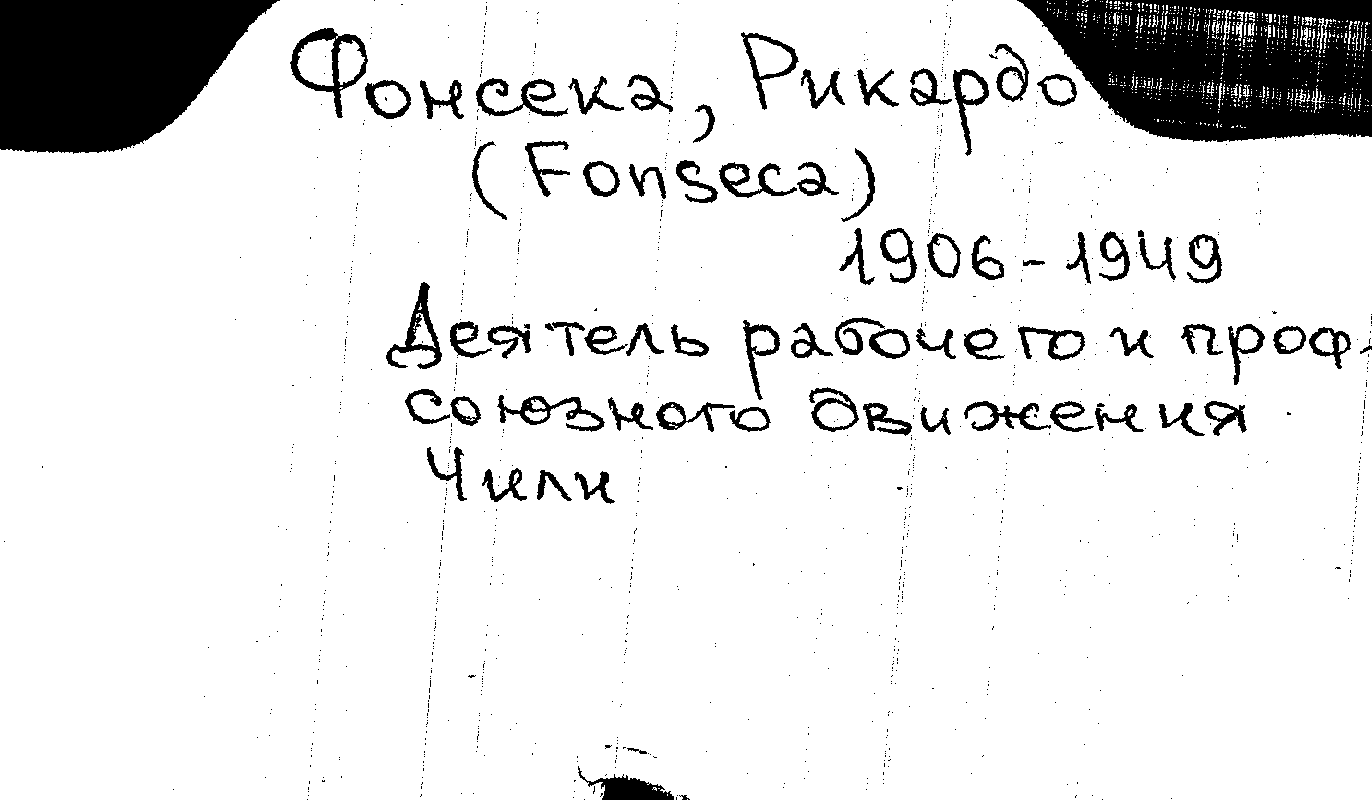 Фонсека, Рикардо
(Fonseca)
1906-1949
Деятель рабочего и проф-
союзного движения
Чили